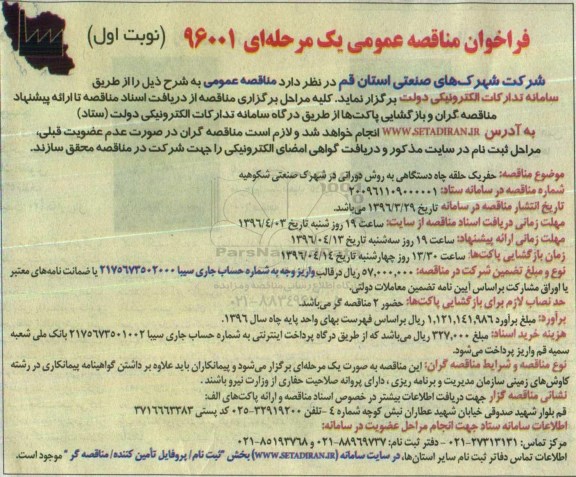 فراخوان مناقصه عمومی یک مرحله‌ای ۹۶۰۰۱ (نوبت اول)
شرکت شهرک‌های صنعتی استان قم در نظر دارد مناقصه عمومی به شرح ذیل را از طریق
سامانه تدارکات الکترونیکی دولت برگزار نماید. کلیه مراحل برگزاری مناقصه از دریافت اسناد مناقصه تا ارائه پیشنهاد
مناقصه گران و بازگشایی پاکت‌ها از طریق درگاه سامانه تدارکات الکترونیکی دولت (ستاد)
به آدرس WWW.SETADIRAN.IR انجام خواهد شد و لازم است مناقصه گران در صورت عدم عضویت قبلی،
مراحل ثبت نام در سایت مذکور و دریافت گواهی امضای الکترونیکی را جهت شرکت در مناقصه محقق سازند.
موضوع مناقصه: حفر یک حلقه چاه دستگاهی به روش دورانی در شهرک صنعتی شکوهیه
شماره مناقصه در سامانه ستاد: ۲۰۰۹۶۱۱۰۹۰۰۰۰۰۱
تاریخ انتشار مناقصه در سامانه تاریخ ۱۳۹۶/۳/۲۹ می‌باشد.
مهلت زمانی دریافت اسناد مناقصه از سایت: ساعت ۱۹ روز شنبه تاریخ ۱۳۹۶/۴/۰۳
مهلت زمانی ارائه پیشنهاد: ساعت ۱۹ روز سه‌شنبه تاریخ ۱۳۹۶/۰۴/۱۳
زمان بازگشایی پاکت‌ها: ساعت ۱۳/۳۰ روز چهارشنبه تاریخ ۱۳۹۶/۰۴/۱۴
نوع و مبلغ تضمین شرکت در مناقصه: ۵۷,۰۰۰,۰۰۰ ریال در قالب واریز وجه به شماره حساب جاری سیبا ۲۱۷۵۶۷۳۵۰۲۰۰۰ یا ضمانت نامه‌های معتبر
یا اوراق مشارکت براساس آیین نامه تضمین معاملات دولتی.
حد نصاب لازم برای بازگشایی پاکت‌ها: حضور ۲ مناقصه گر می‌باشد.
برآورد: مبلغ برآورد ۱,۱۲۱,۱۴۱,۹۸۶ ریال براساس فهرست بهای واحد پایه چاه سال ۱۳۹۶.
هزینه خرید اسناد: مبلغ ۳۲۷,۰۰۰ ریال می‌باشد که از طریق درگاه پرداخت اینترنتی به شماره حساب جاری سیبا ۲۱۷۵۶۷۳۵۰۱۰۰۲ بانک ملی شعبه
سمیه قم واریز پرداخت می‌شود.
نوع مناقصه و شرایط مناقصه گران: این مناقصه به صورت یک مرحله‌ای برگزار می‌شود و پیمانکاران باید علاوه بر داشتن گواهینامه پیمانکاری در رشته
کاوش‌های زمینی سازمان مدیریت و برنامه ریزی ، دارای پروانه صلاحیت حفاری از وزارت نیرو باشند .
نشانی مناقصه گزار جهت دریافت اطلاعات بیشتر در خصوص اسناد مناقصه و ارائه پاکت‌های الف:
قم بلوار شهید صدوقی خیابان شهید عطاران نبش کوچه شماره ۴ -تلفن ۳۲۹۱۹۲۰۰-۰۲۵ کد پستی ۳۷۱۶۶۶۳۳۸۳
اطلاعات سامانه ستاد جهت انجام مراحل عضویت در سامانه:
مرکز تماس: ۲۷۳۱۳۱۳۱-۰۲۱ - دفتر ثبت نام: ۸۸۹۶۹۷۳۷-۰۲۱ و ۸۵۱۹۳۷۶۸-۰۲۱
اطلاعات تماس دفاتر ثبت نام سایر استان‌ها، در سایت سامانه (WWW.SETADIRAN.IR) بخش "ثبت نام / پروفایل تأمین کننده / مناقصه گر" موجود است.